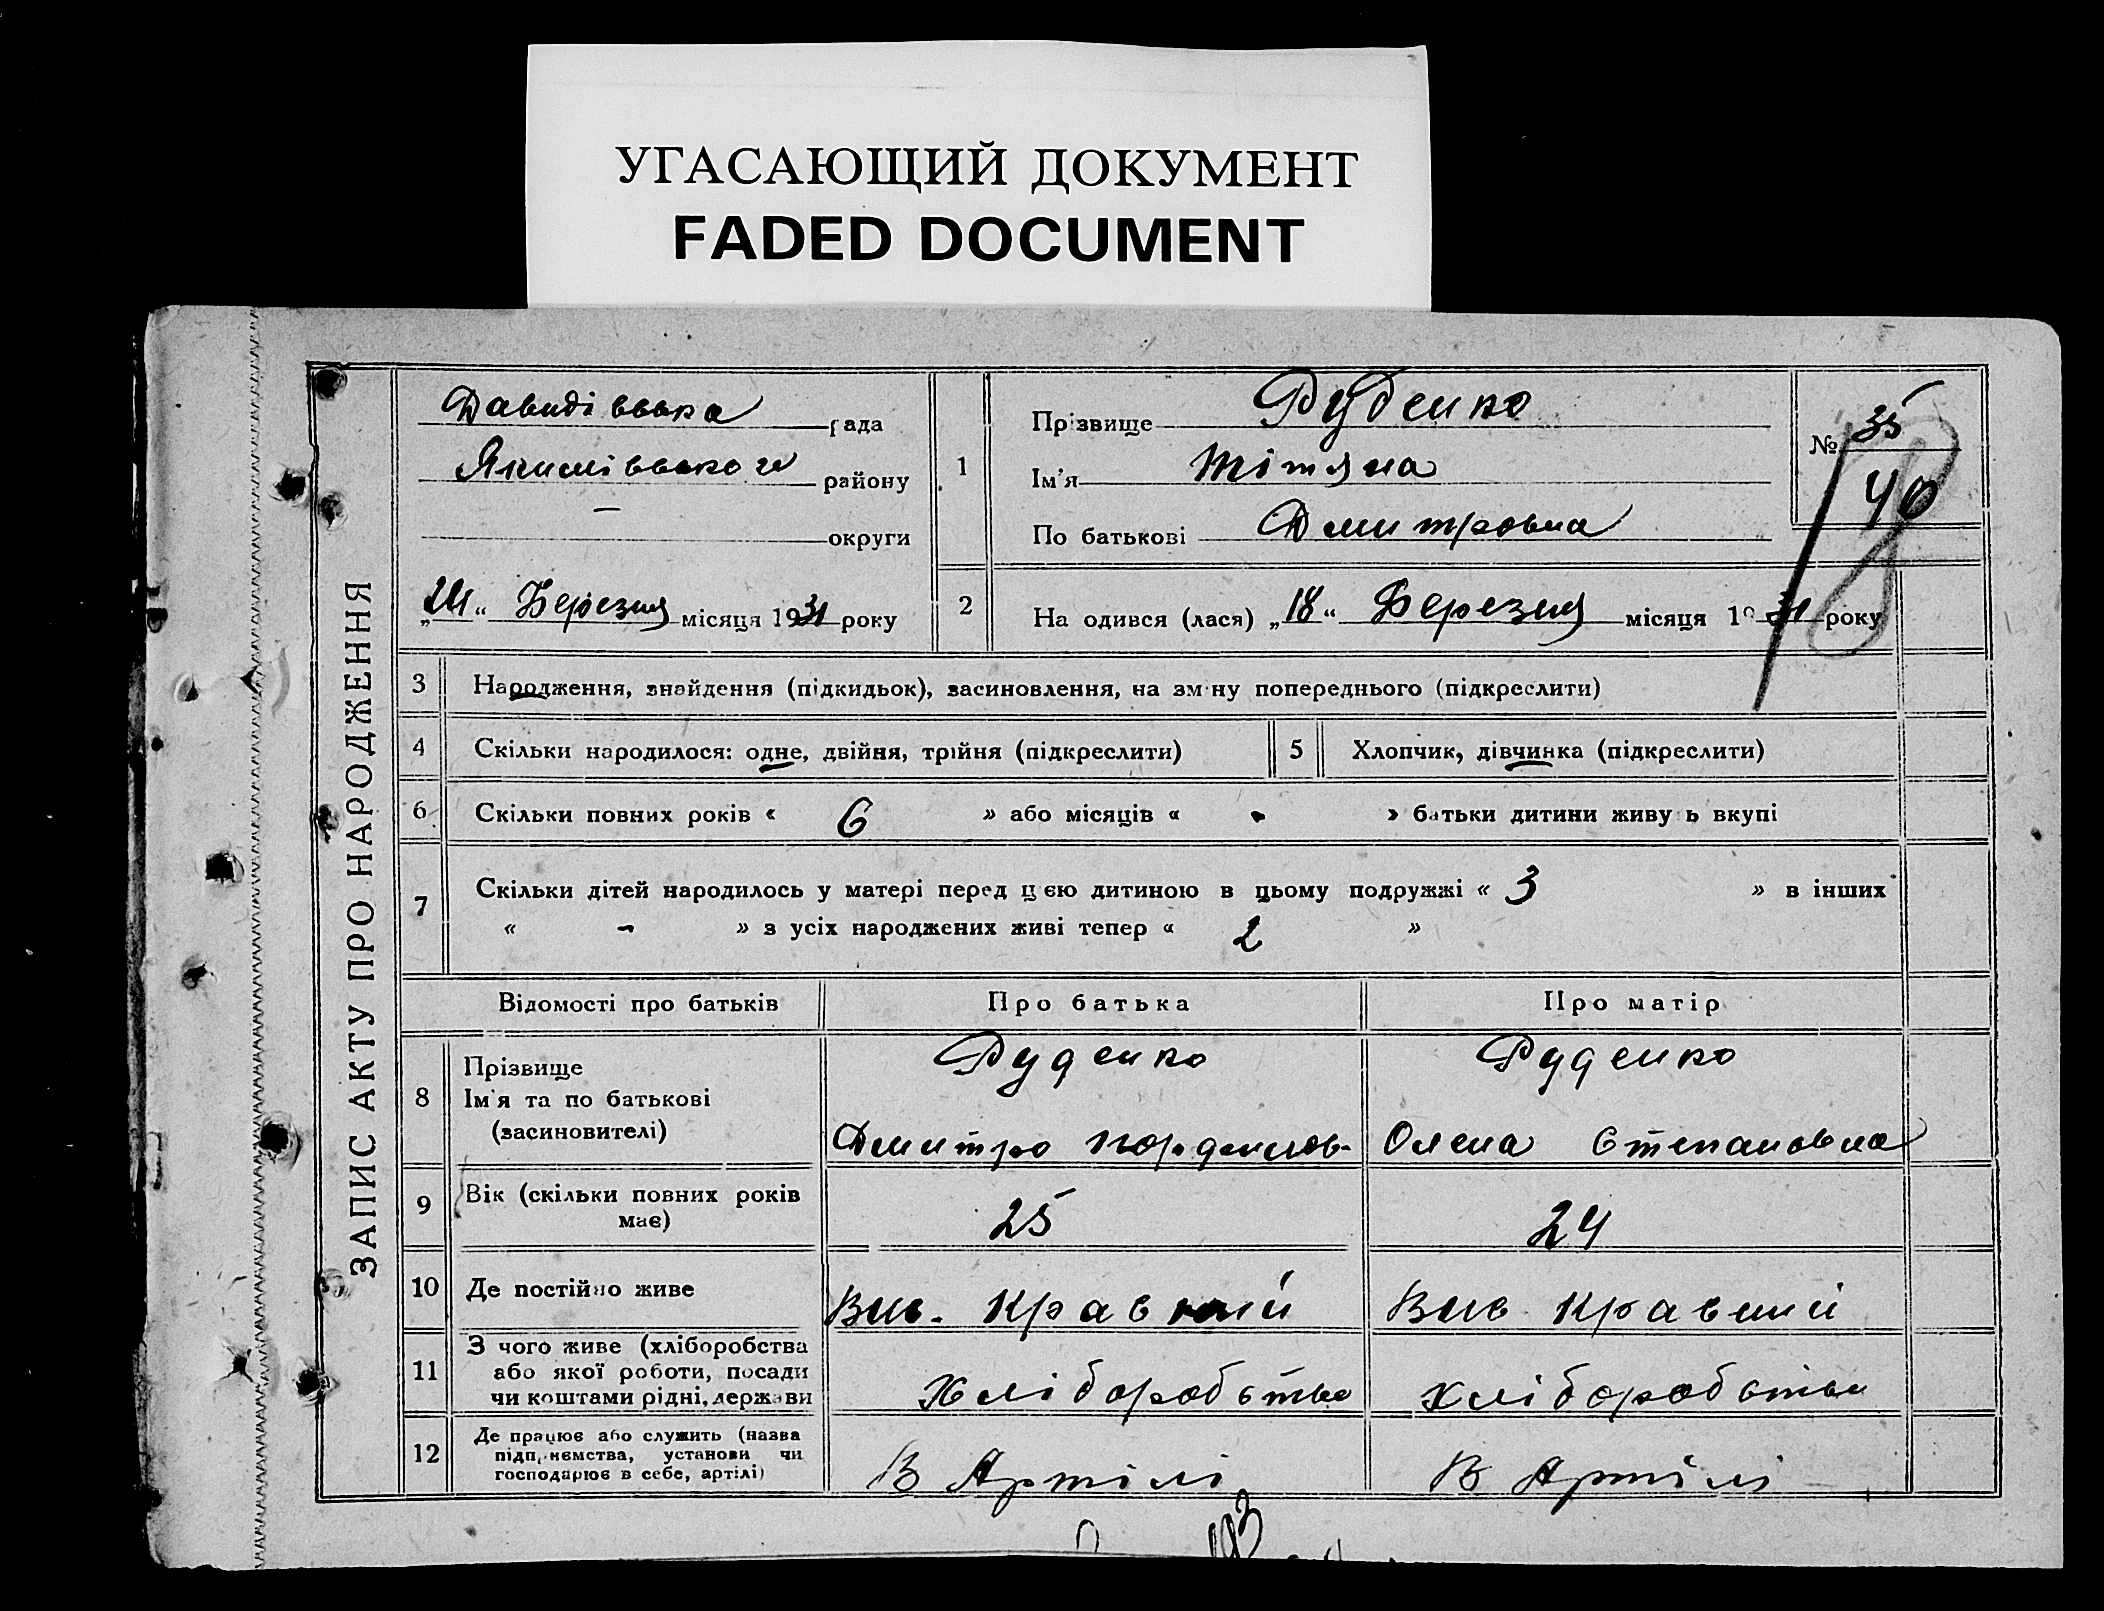 УГАСАЮЩИЙ ДОКУМЕНТ
FADED DOCUMENT
ЗАПИС АКТУ ПРО НАРОДЖЕННЯ
Давидівська рада
Якимівського району
— округи
„24“ Березня місяця 1931 року
1
Прізвище Руденко
Ім'я Тітяна
По батькові Дмитровна
№ 35
40
2 На одився (лася) „18“ Березня місяця 1931 року
3 Народження, знайдення (підкидьок), засиновлення, на зміну попереднього (підкреслити)
4 Скільки народилося: одне, двійня, трійня (підкреслити)
5 Хлопчик, дівчинка (підкреслити)
6 Скільки повних років « 6 » або місяців « - » батьки дитини живуть вкупі
7 Скільки дітей народилось у матері перед цією дитиною в цьому подружжі « 3 » в інших
« - » з усіх народжених живі тепер « 2 »
Відомості про батьків Про батька Про матір
8 Прізвище Руденко Руденко
Ім'я та по батькові
(засиновителі) Дмитро Олена Степановна
9 Вік (скільки повних років
має) 25 24
10 Де постійно живе Вис. Кравкий Вис Кравкий
11 З чого живе (хліборобства
або якої роботи, посади
чи коштами рідні, держави Хліборобство Хліборобство
12 Де працює або служить (назва
підприємства, установи чи
господарює в себе, артілі) В Артілі В Артілі
193